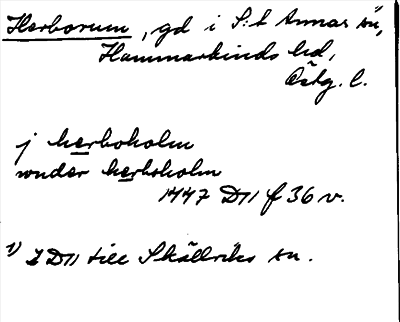 Herborum, gd i S:t Annas sn,
Hammarkinds hd,
Östg. l.
j herboholm
wnder herboholm
1447 D11 f 36 v.
1) I D11 till Skällviks sn.